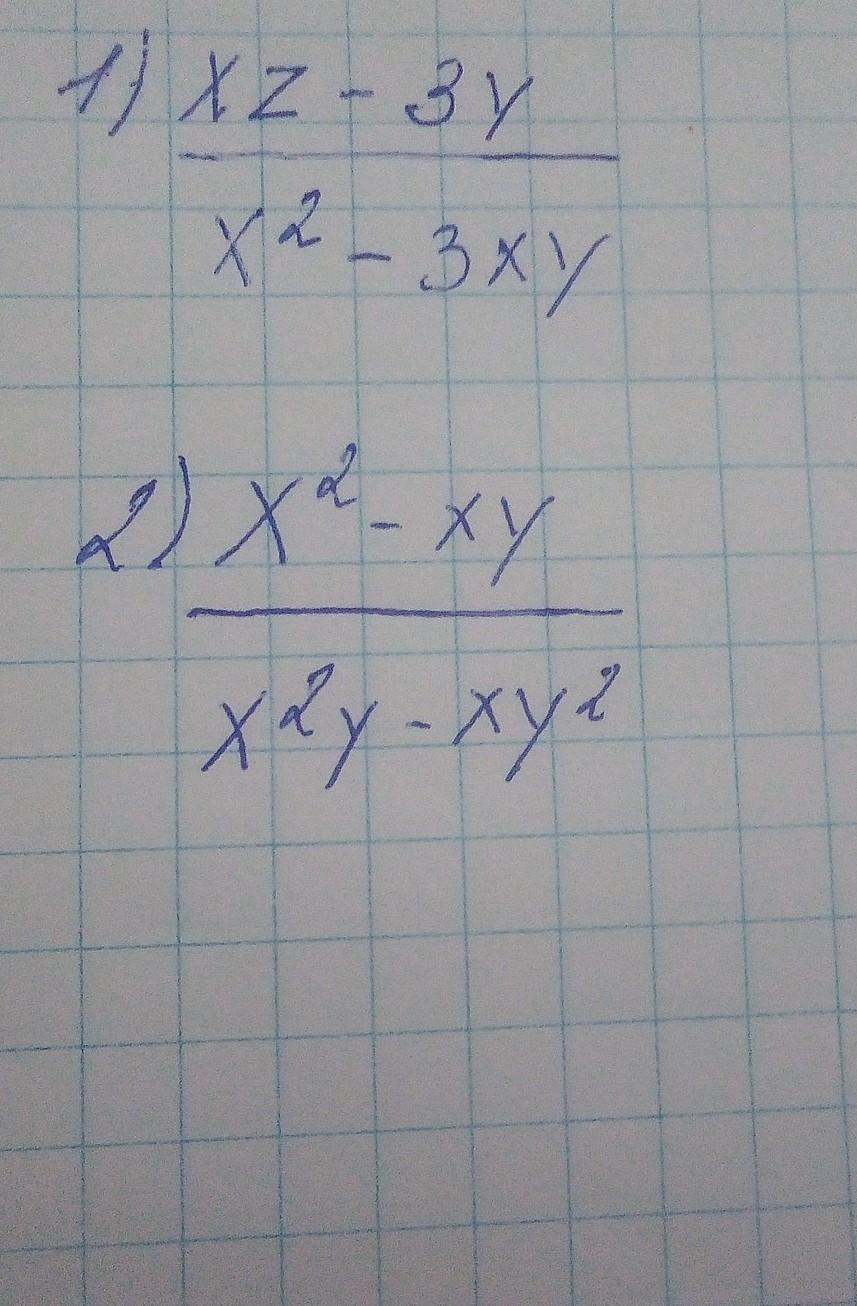 1) xz - 3y
x² - 3xy
2) x² - xy
x²y - xy²